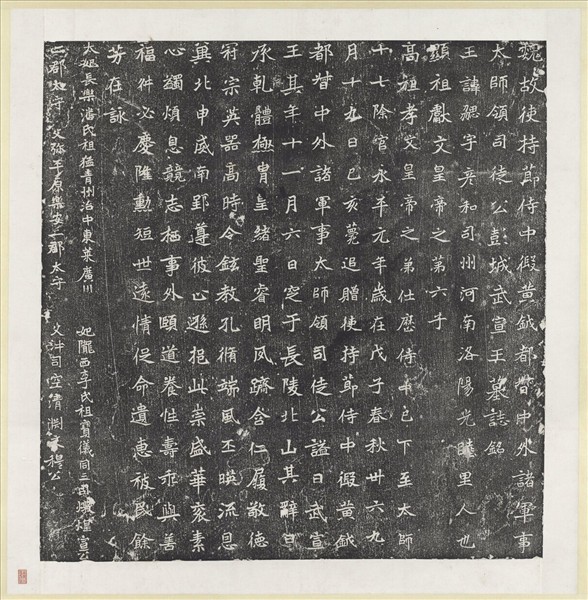 魏故使持莭侍中假黄鉞都督中外諸軍事
太師領司徒公彭城武宣王墓誌銘
王諱勰字彦和司州河南洛陽光睦里人也
顯祖獻文皇帝之第六子
高祖孝文皇帝之弟仕歷侍中已下至太師
十七除官永平元年歲在戊子春秋卅六九
月十九日己亥薨追贈使持莭侍中假黄鉞
都督中外諸軍事太師領司徒公謚曰武宣
王其年十一月六日窆于長陵北山其辭曰
承乾體極冑皇緒聖睿明夙躋含仁履敬德
冠宗英器高時令鉉教孔脩端風丕暎流恩
冀北申威南郢遵彼止遜挹此崇盛華衮素
心蠲煩息競志栖事外頤道養性壽乖與善
福舛必慶隆勳短世遠情促命遺惠被民餘
芳在詠
太妃長樂潘氏祖猛青州治中東萊廣川
二郡太守 父弥平原樂安二郡太守
妃隴西李氏祖寶儀同三司燉煌宣公
父沖司空清淵文穆公